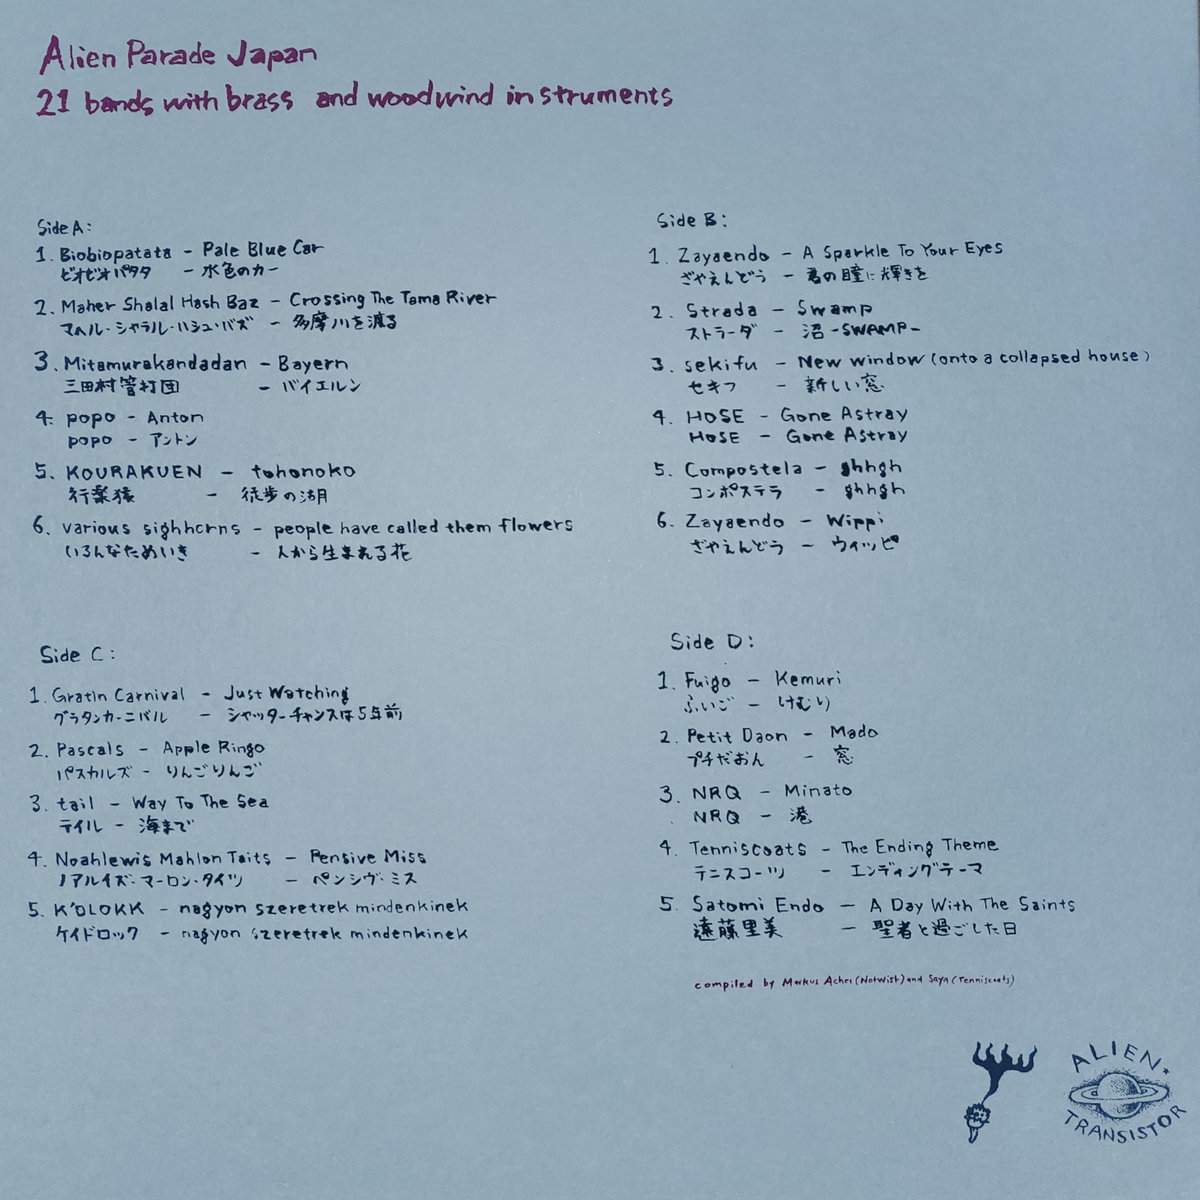 Alien Parade Japan
21 bands with brass and woodwind instruments
Side A:
1. Biobiopatata - Pale Blue Car
ビオビオパタタ - 水色のカー
2. Maher Shalal Hash Baz - Crossing The Tama River
マヘル・シャラル・ハシュ・バズ - 多摩川を渡る
3. Mitamurakandadan - Bayern
三田村管打団 - バイエルン
4. popo - Anton
popo - アントン
5. KOURAKUEN - tohonoko
行楽猿 - 徒歩の湖
6. various sighhorns - people have called them flowers
いろんなためいき - 人から生まれる花
Side B:
1. Zayaendo - A Sparkle To Your Eyes
ざやえんどう - 君の瞳に輝きを
2. Strada - Swamp
ストラーダ - 沼 -SWAMP-
3. sekifu - New window (onto a collapsed house)
セキフ - 新しい窓
4. HOSE - Gone Astray
HOSE - Gone Astray
5. Compostela - ghhgh
コンポステラ - ghhgh
6. Zayaendo - Wippi
ざやえんどう - ウィッピ
Side C:
1. Gratin Carnival - Just Watching
グラタンカーニバル - シャッターチャンスは5歩前
2. Pascals - Apple Ringo
パスカルズ - りんごりんご
3. tail - Way To The Sea
テイル - 海まで
4. Noahlewis Mahlon Taits - Pensive Miss
ノアルイズ・マーロン・タイツ - ペンシヴ・ミス
5. K'DLOKK - nagyon szeretrek mindenkinek
ケイドロック - nagyon szeretrek mindenkinek
Side D:
1. Fuigo - Kemuri
ふいご - けむり
2. Petit Daon - Mado
プチだおん - 窓
3. NRQ - Minato
NRQ - 港
4. Tenniscoats - The Ending Theme
テニスコーツ - エンディングテーマ
5. Satomi Endo - A Day With The Saints
遠藤里美 - 聖者と過ごした日
compiled by Markus Acher (Notwist) and Saya (Tenniscoats)
ALIEN TRANSISTOR